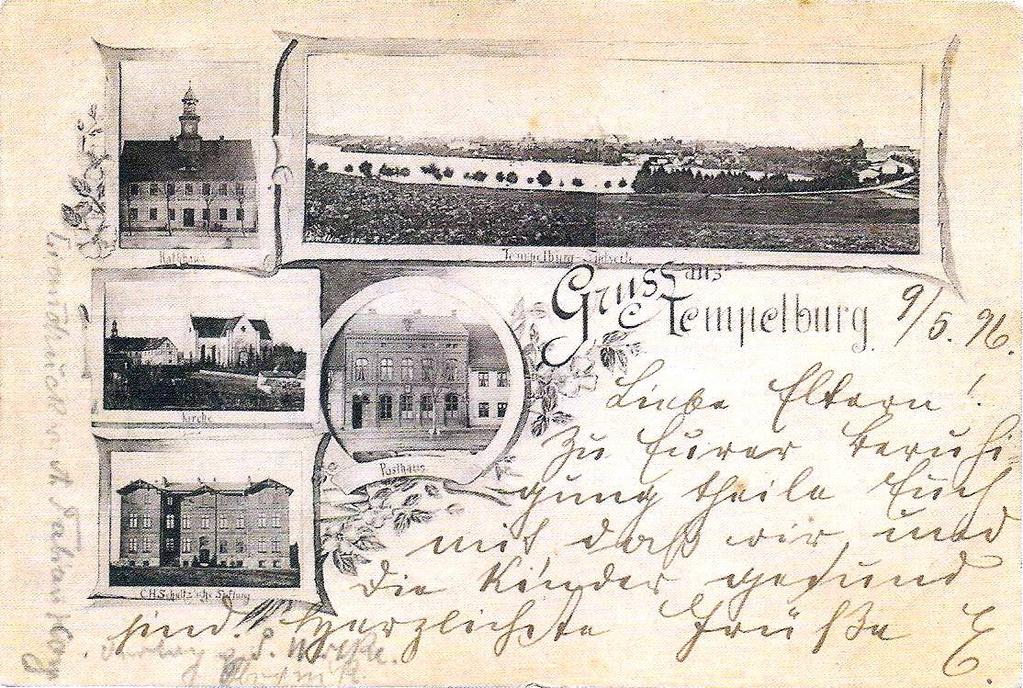 Rathhaus
Tempelburg Südseite
Kirche
Posthaus
C.H.Schultz'sche Stiftung
Gruss aus
Tempelburg
9/5. 96.
Liebe Eltern!
Zu Eurer Beruhi-
gung theile Euch
mit daß wir und
die Kinder gesund
sind. Herzlichste Grüße E.
Verlag